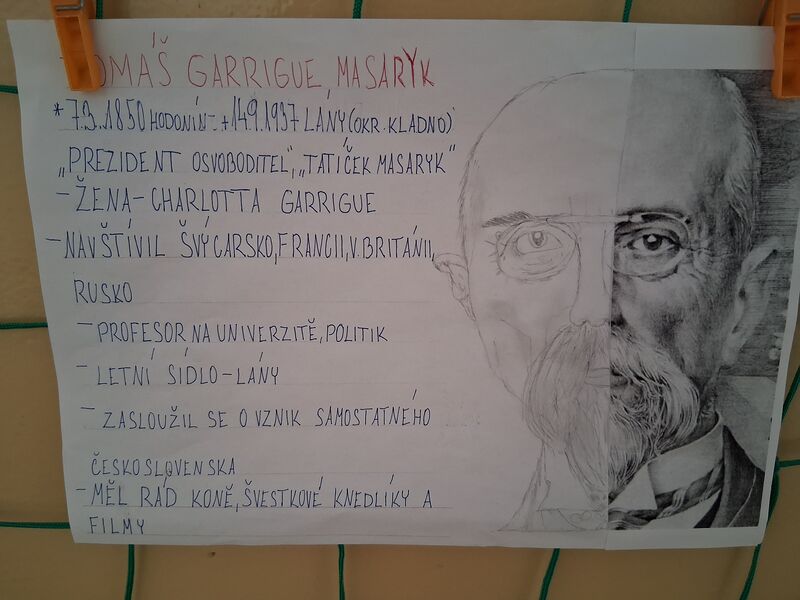 TOMÁŠ GARRIGUE MASARYK
* 7.3.1850 HODONÍN - + 14.9.1937 LÁNY (OKR. KLADNO)
„PREZIDENT OSVOBODITEL", „TATÍČEK MASARYK"
- ŽENA - CHARLOTTA GARRIGUE
- NAVŠTÍVIL ŠVÝCARSKO, FRANCII, V. BRITÁNII,
RUSKO
- PROFESOR NA UNIVERZITĚ, POLITIK
- LETNÍ SÍDLO - LÁNY
- ZASLOUŽIL SE O VZNIK SAMOSTATNÉHO
ČESKOSLOVENSKA
- MĚL RÁD KONĚ, ŠVESTKOVÉ KNEDLÍKY A
FILMY